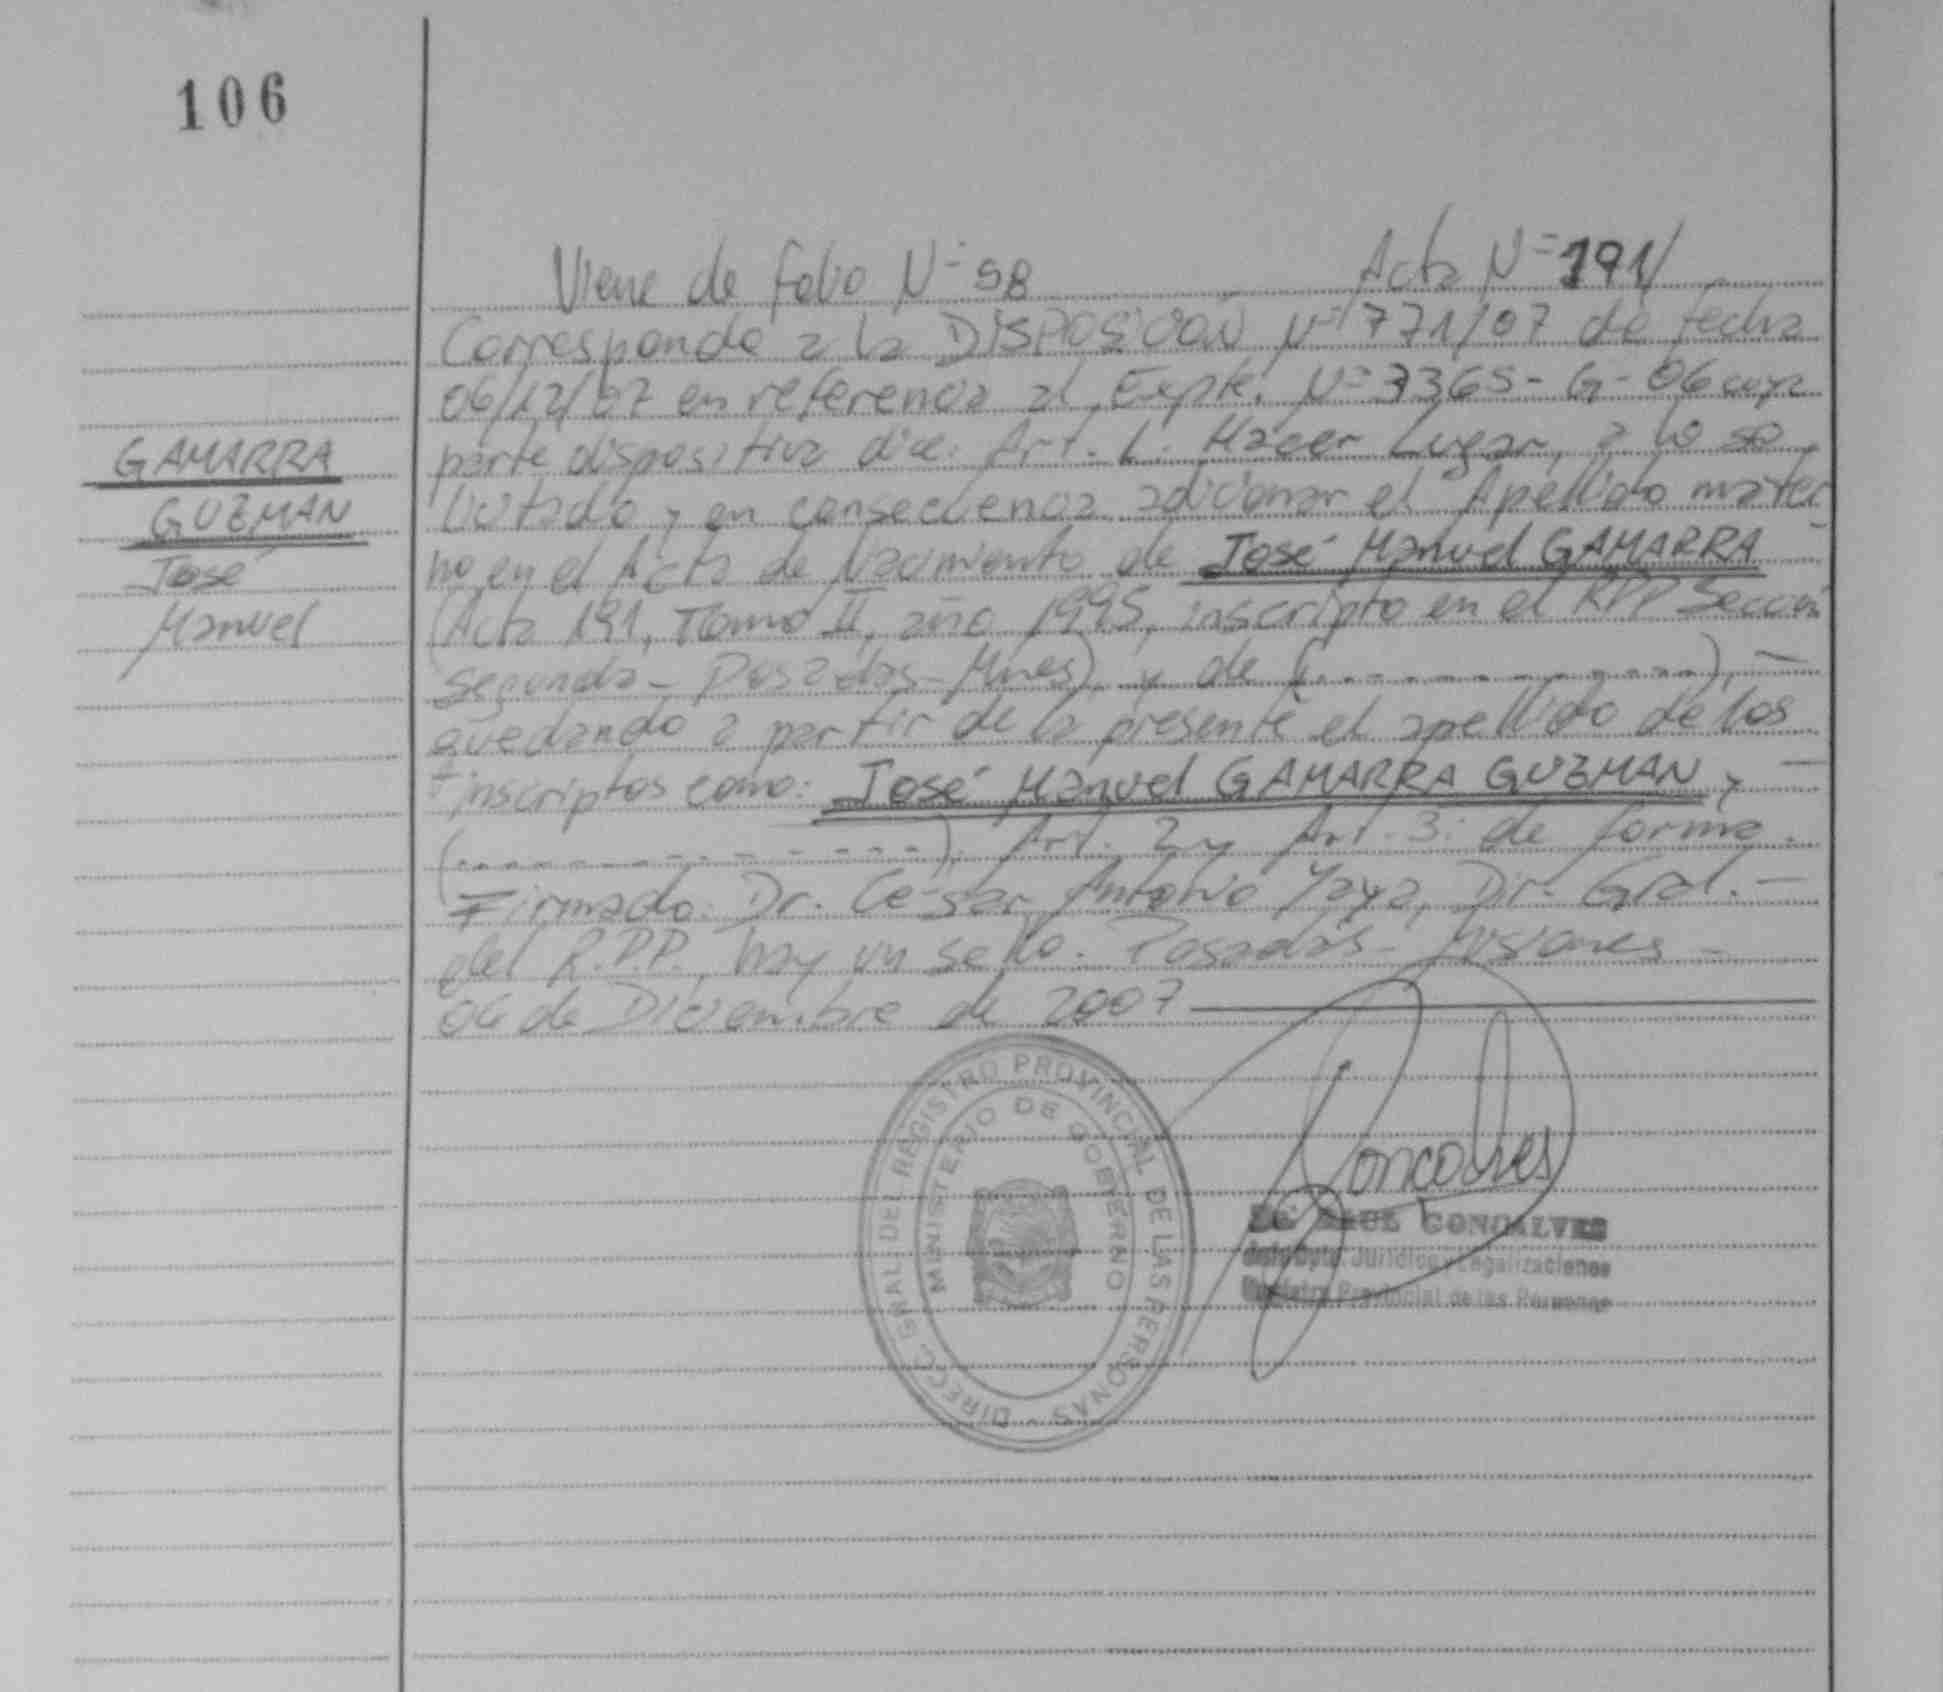 106
Viene de folio N= 98 Acta N= 191/
Corresponde a la DISPOSICION N= 771/07 de fecha
06/12/07 en referencia al Expte. N= 3365-G-06 cuya
parte dispositiva dice: Art. 1: Hacer Lugar, a lo so
licitado y en consecuencia adicionar el Apellido mater
no en el Acta de Nacimiento de José Manuel GAMARRA
(Acta 191, Tomo II, año 1995, inscripto en el RPP Sección
Segunda - Posadas - Mnes) y de (------------), -
quedando a partir de la presente el apellido de los
inscriptos como: José Manuel GAMARRA GUZMAN y -
(-------------). Art. 2 y Art. 3: de forma.
Firmado: Dr. César Antonio Yaya, Dir. Gral. -
del R.P.P., hay un sello. Posadas - Misiones -
06 de Diciembre de 2007
GAMARRA
GUZMAN
José
Manuel
DIRECC. GRAL DEL REGISTRO PROVINCIAL DE LAS PERSONAS -
MINISTERIO DE GOBIERNO
Goncalves
RAUL GONCALVES
Jefe Dpto. Jurídico y Legalizaciones
Registro Provincial de las Personas